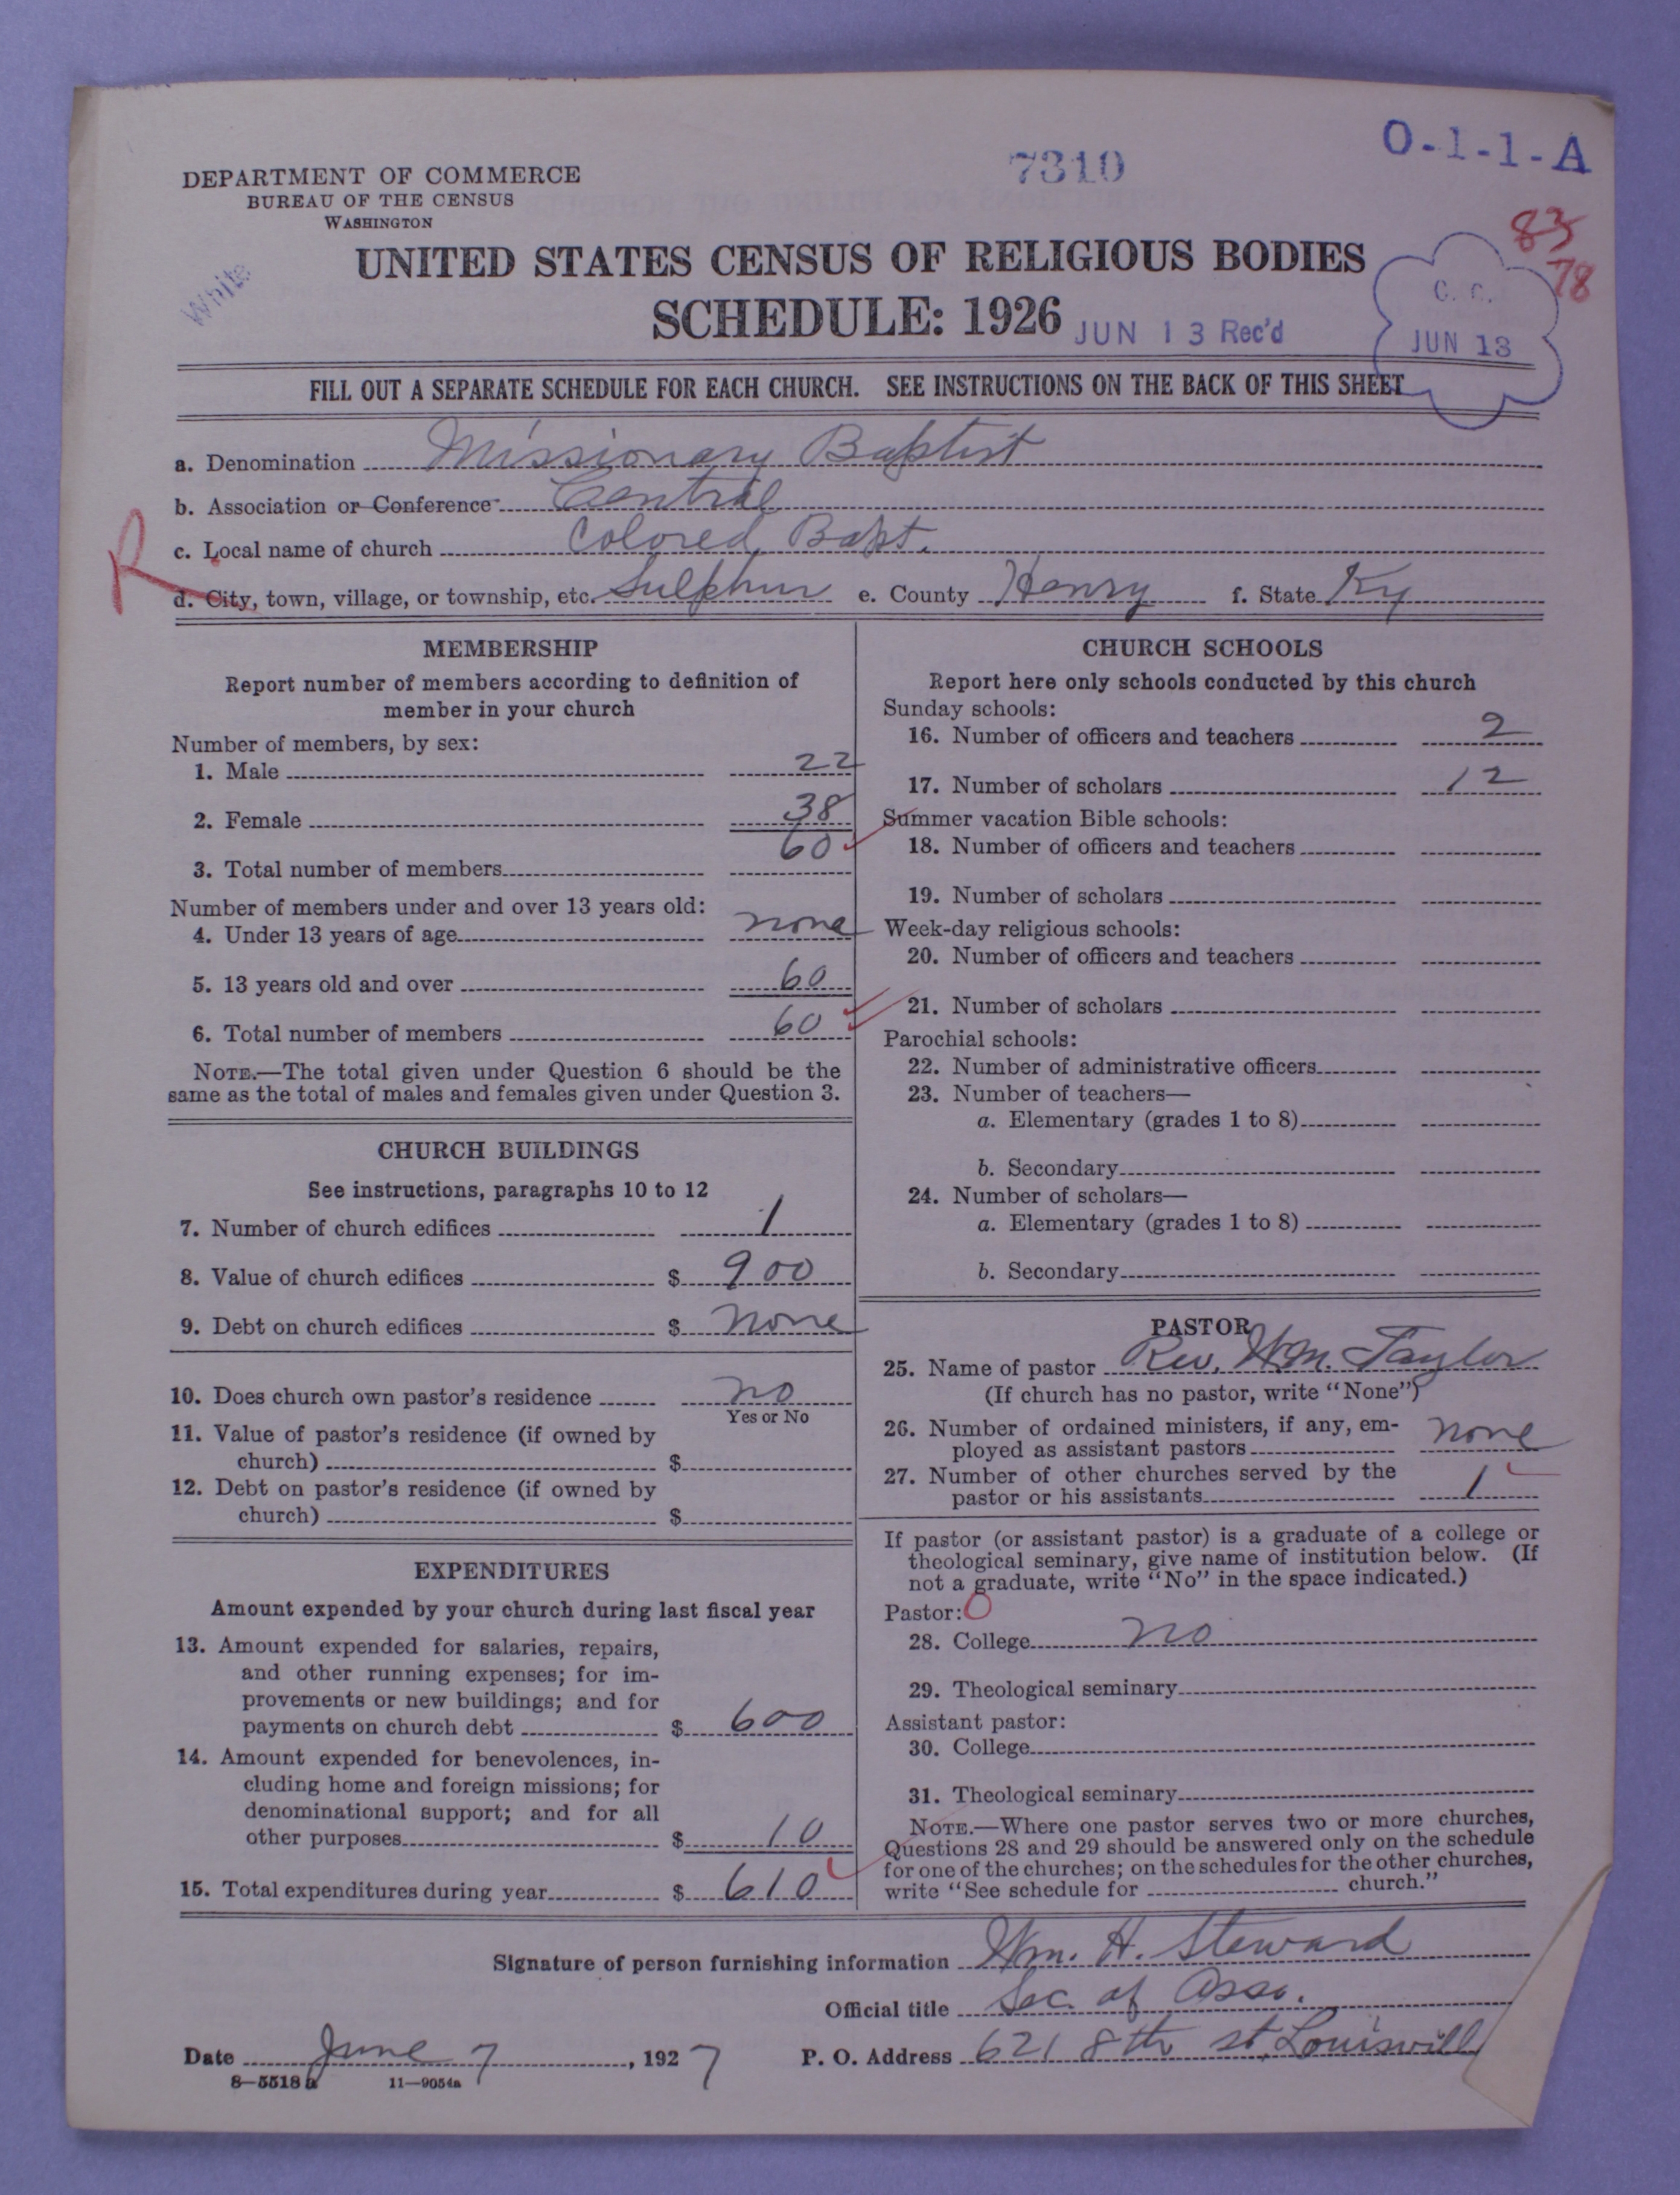 7310
O-1-1-A
DEPARTMENT OF COMMERCE
BUREAU OF THE CENSUS
WASHINGTON
83
78
White
UNITED STATES CENSUS OF RELIGIOUS BODIES
SCHEDULE: 1926
JUN 13 Rec'd
C. C.
JUN 13
FILL OUT A SEPARATE SCHEDULE FOR EACH CHURCH. SEE INSTRUCTIONS ON THE BACK OF THIS SHEET
a. Denomination Missionary Baptist
b. Association or Conference Central
R
c. Local name of church Colored Bapt.
d. City, town, village, or township, etc. Sulphur e. County Henry f. State Ky
MEMBERSHIP
Report number of members according to definition of
member in your church
Number of members, by sex:
1. Male 22
2. Female 38
3. Total number of members 60
Number of members under and over 13 years old:
4. Under 13 years of age none
5. 13 years old and over 60
6. Total number of members 60
NOTE.—The total given under Question 6 should be the
same as the total of males and females given under Question 3.
CHURCH BUILDINGS
See instructions, paragraphs 10 to 12
7. Number of church edifices 1
8. Value of church edifices $ 900
9. Debt on church edifices $ none
10. Does church own pastor's residence no
Yes or No
11. Value of pastor's residence (if owned by
church) $
12. Debt on pastor's residence (if owned by
church) $
EXPENDITURES
Amount expended by your church during last fiscal year
13. Amount expended for salaries, repairs,
and other running expenses; for im-
provements or new buildings; and for
payments on church debt $ 600
14. Amount expended for benevolences, in-
cluding home and foreign missions; for
denominational support; and for all
other purposes $ 10
15. Total expenditures during year $ 610
CHURCH SCHOOLS
Report here only schools conducted by this church
Sunday schools:
16. Number of officers and teachers 2
17. Number of scholars 12
Summer vacation Bible schools:
18. Number of officers and teachers
19. Number of scholars
Week-day religious schools:
20. Number of officers and teachers
21. Number of scholars
Parochial schools:
22. Number of administrative officers
23. Number of teachers—
a. Elementary (grades 1 to 8)
b. Secondary
24. Number of scholars—
a. Elementary (grades 1 to 8)
b. Secondary
PASTOR
25. Name of pastor Rev. Wm. Taylor
(If church has no pastor, write "None")
26. Number of ordained ministers, if any, em-
ployed as assistant pastors none
27. Number of other churches served by the
pastor or his assistants 1
If pastor (or assistant pastor) is a graduate of a college or
theological seminary, give name of institution below. (If
not a graduate, write "No" in the space indicated.)
Pastor: 0
28. College no
29. Theological seminary
Assistant pastor:
30. College
31. Theological seminary
NOTE.—Where one pastor serves two or more churches,
Questions 28 and 29 should be answered only on the schedule
for one of the churches; on the schedules for the other churches,
write "See schedule for church."
Signature of person furnishing information Wm. H. Steward
Official title Sec. of Asso.
Date June 7, 1927 P. O. Address 621 8th st. Louisvill
8—5518 a 11—9054a